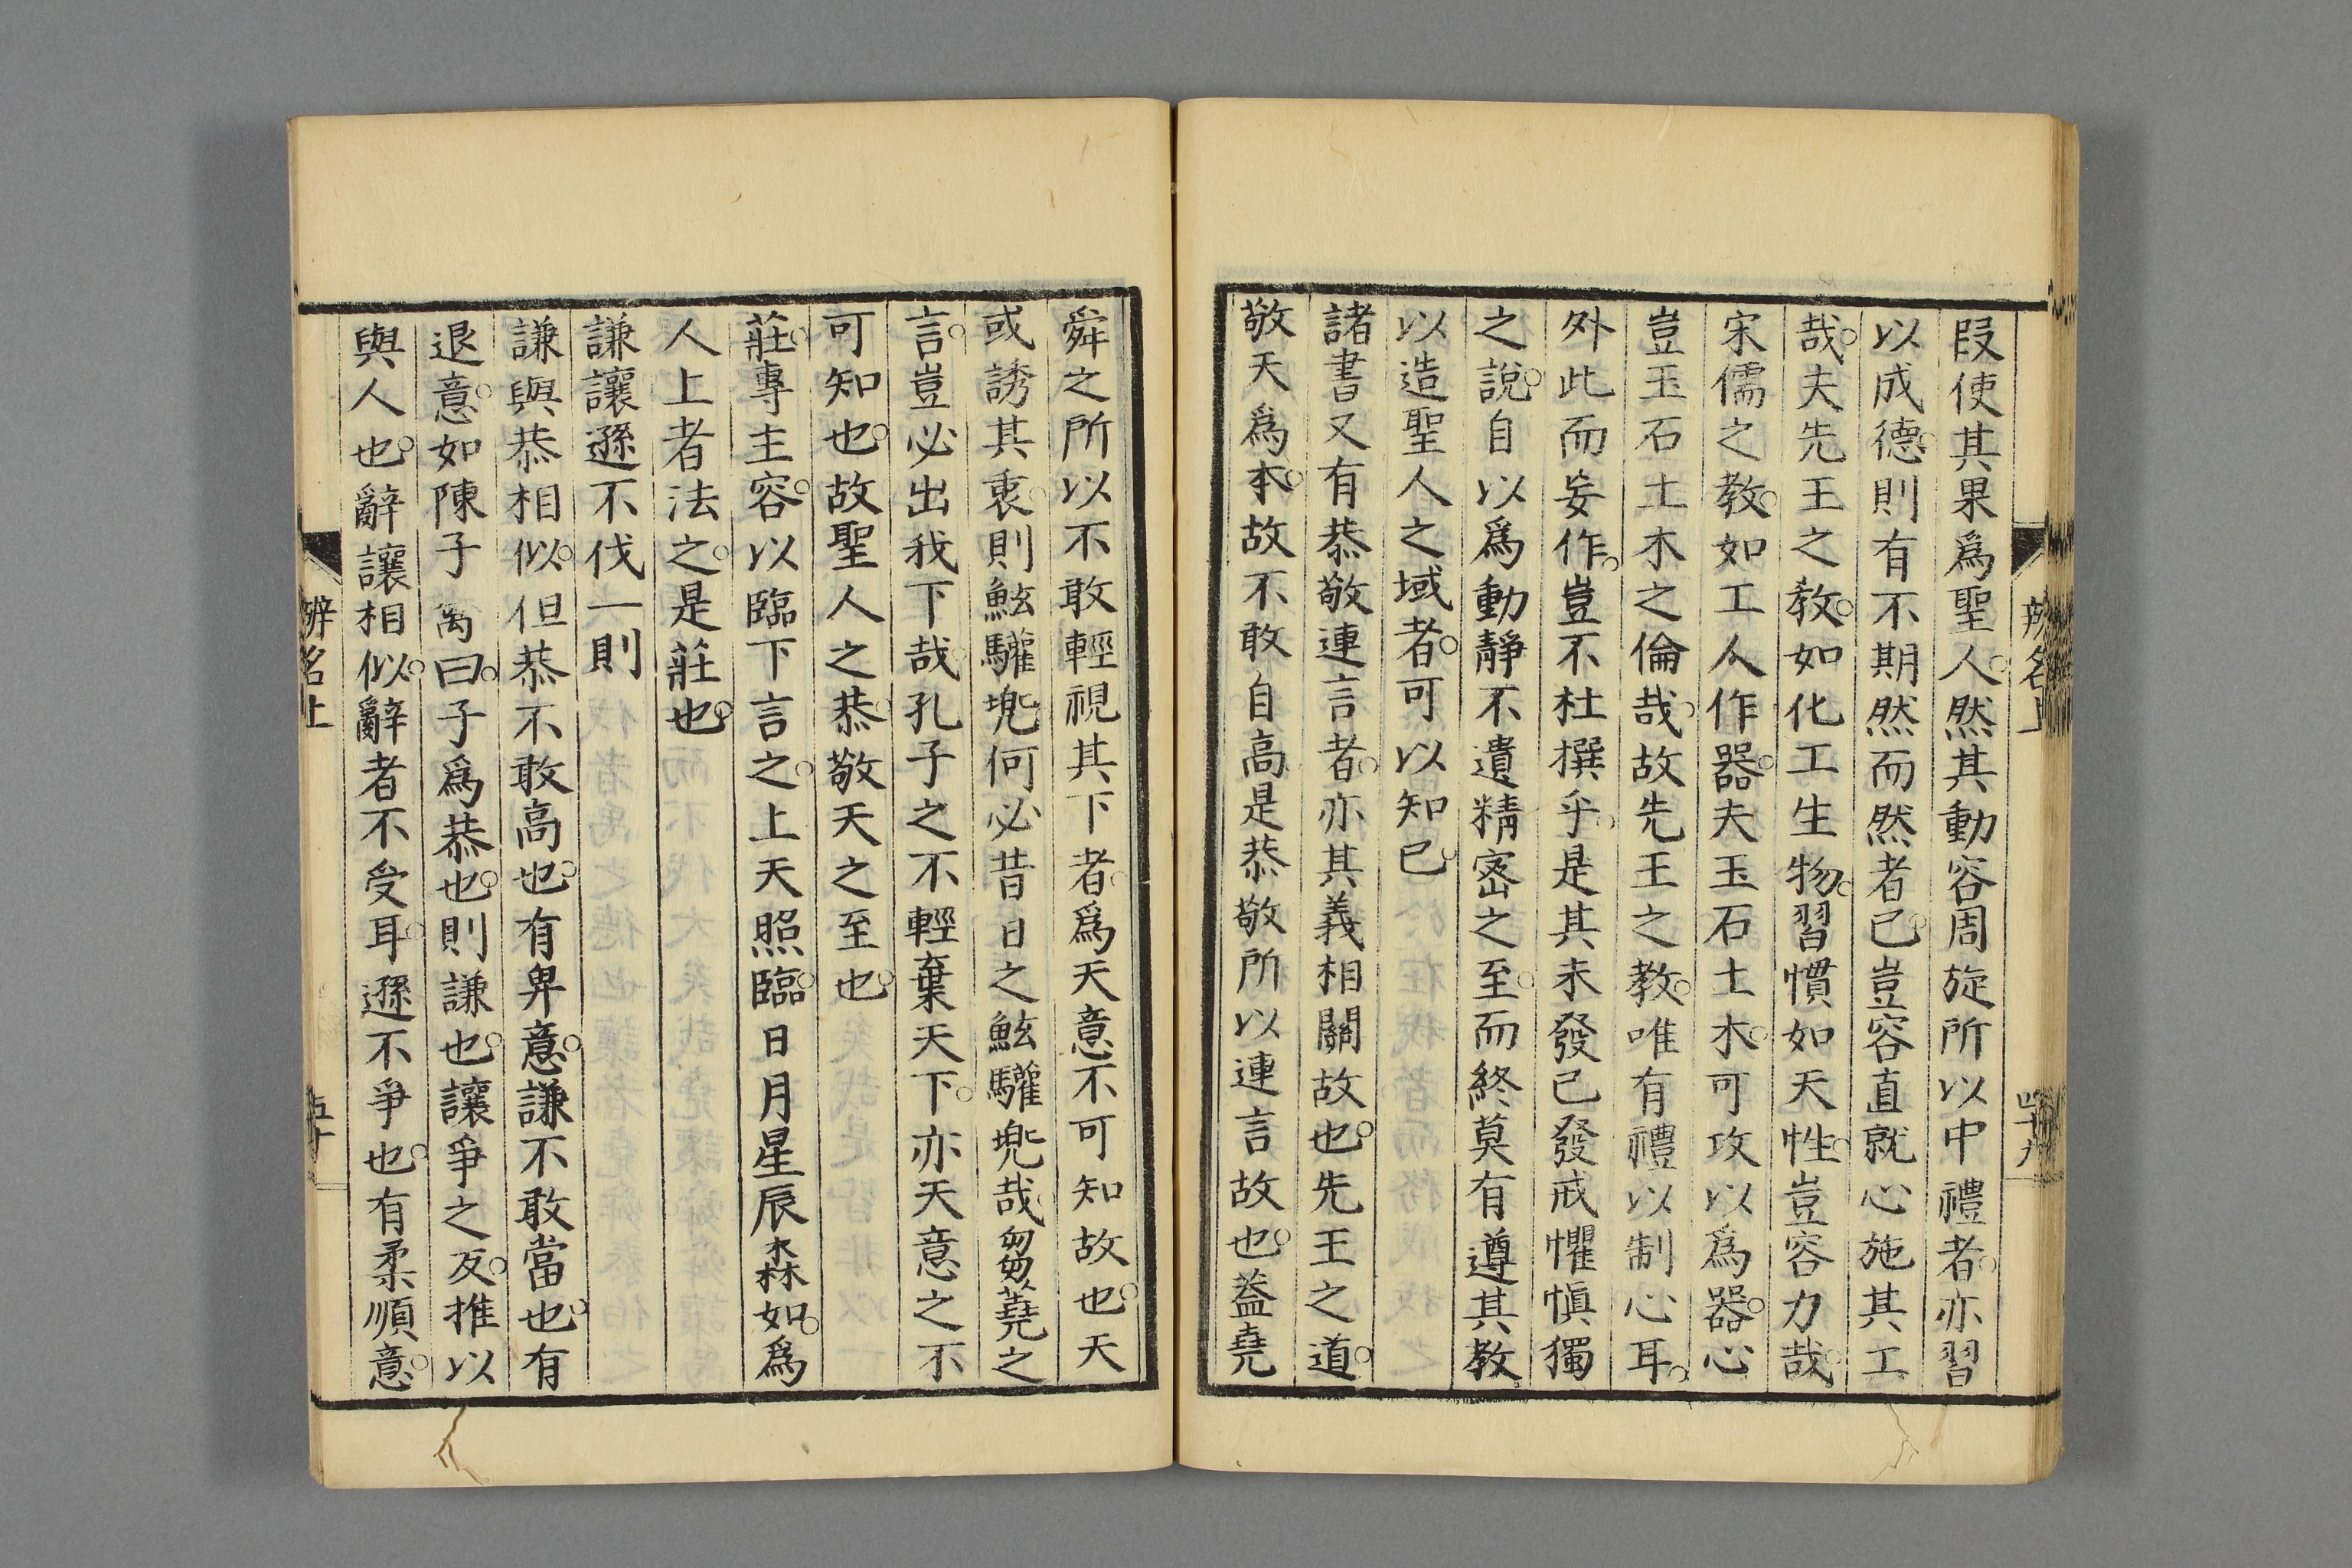 辨名上
四十九
叚使其果爲聖人。然其動容周旋所以中禮者。亦習
以成德。則有不期然而然者已。豈容直就心施其工
哉。夫先王之教。如化工生物。習慣如天性。豈容力哉。
宋儒之教。如工人作器。夫玉石土木。可攻以爲器。心
豈玉石土木之倫哉。故先王之教。唯有禮以制心耳。
外此而妄作。豈不杜撰乎。是其未發已發戒懼愼獨
之說。自以爲動靜不遺精宻之至。而終莫有遵其教。
以造聖人之域者。可以知已。
諸書又有恭敬連言者。亦其義相關故也。先王之道。
敬天爲本。故不敢自高。是恭敬所以連言故也。葢堯
舜之所以不敢輕視其下者。爲天意不可知故也。天
或誘其衷。則鮌驩兜何必昔日之鮌驩兜哉。芻蕘之
言。豈必出我下哉。孔子之不輕棄天下。亦天意之不
可知也。故聖人之恭。敬天之至也。
莊。專主容。以臨下言之。上天照臨。日月星辰森如。爲
人上者法之。是莊也。
謙讓遜不伐一則
謙與恭相似。但恭不敢高也。有卑意。謙不敢當也。有
退意。如陳子禽曰。子爲恭也。則謙也。讓爭之反。推以
與人也。辭讓相似。辭者不受耳。遜不爭也。有柔順意。
辨名上
五十